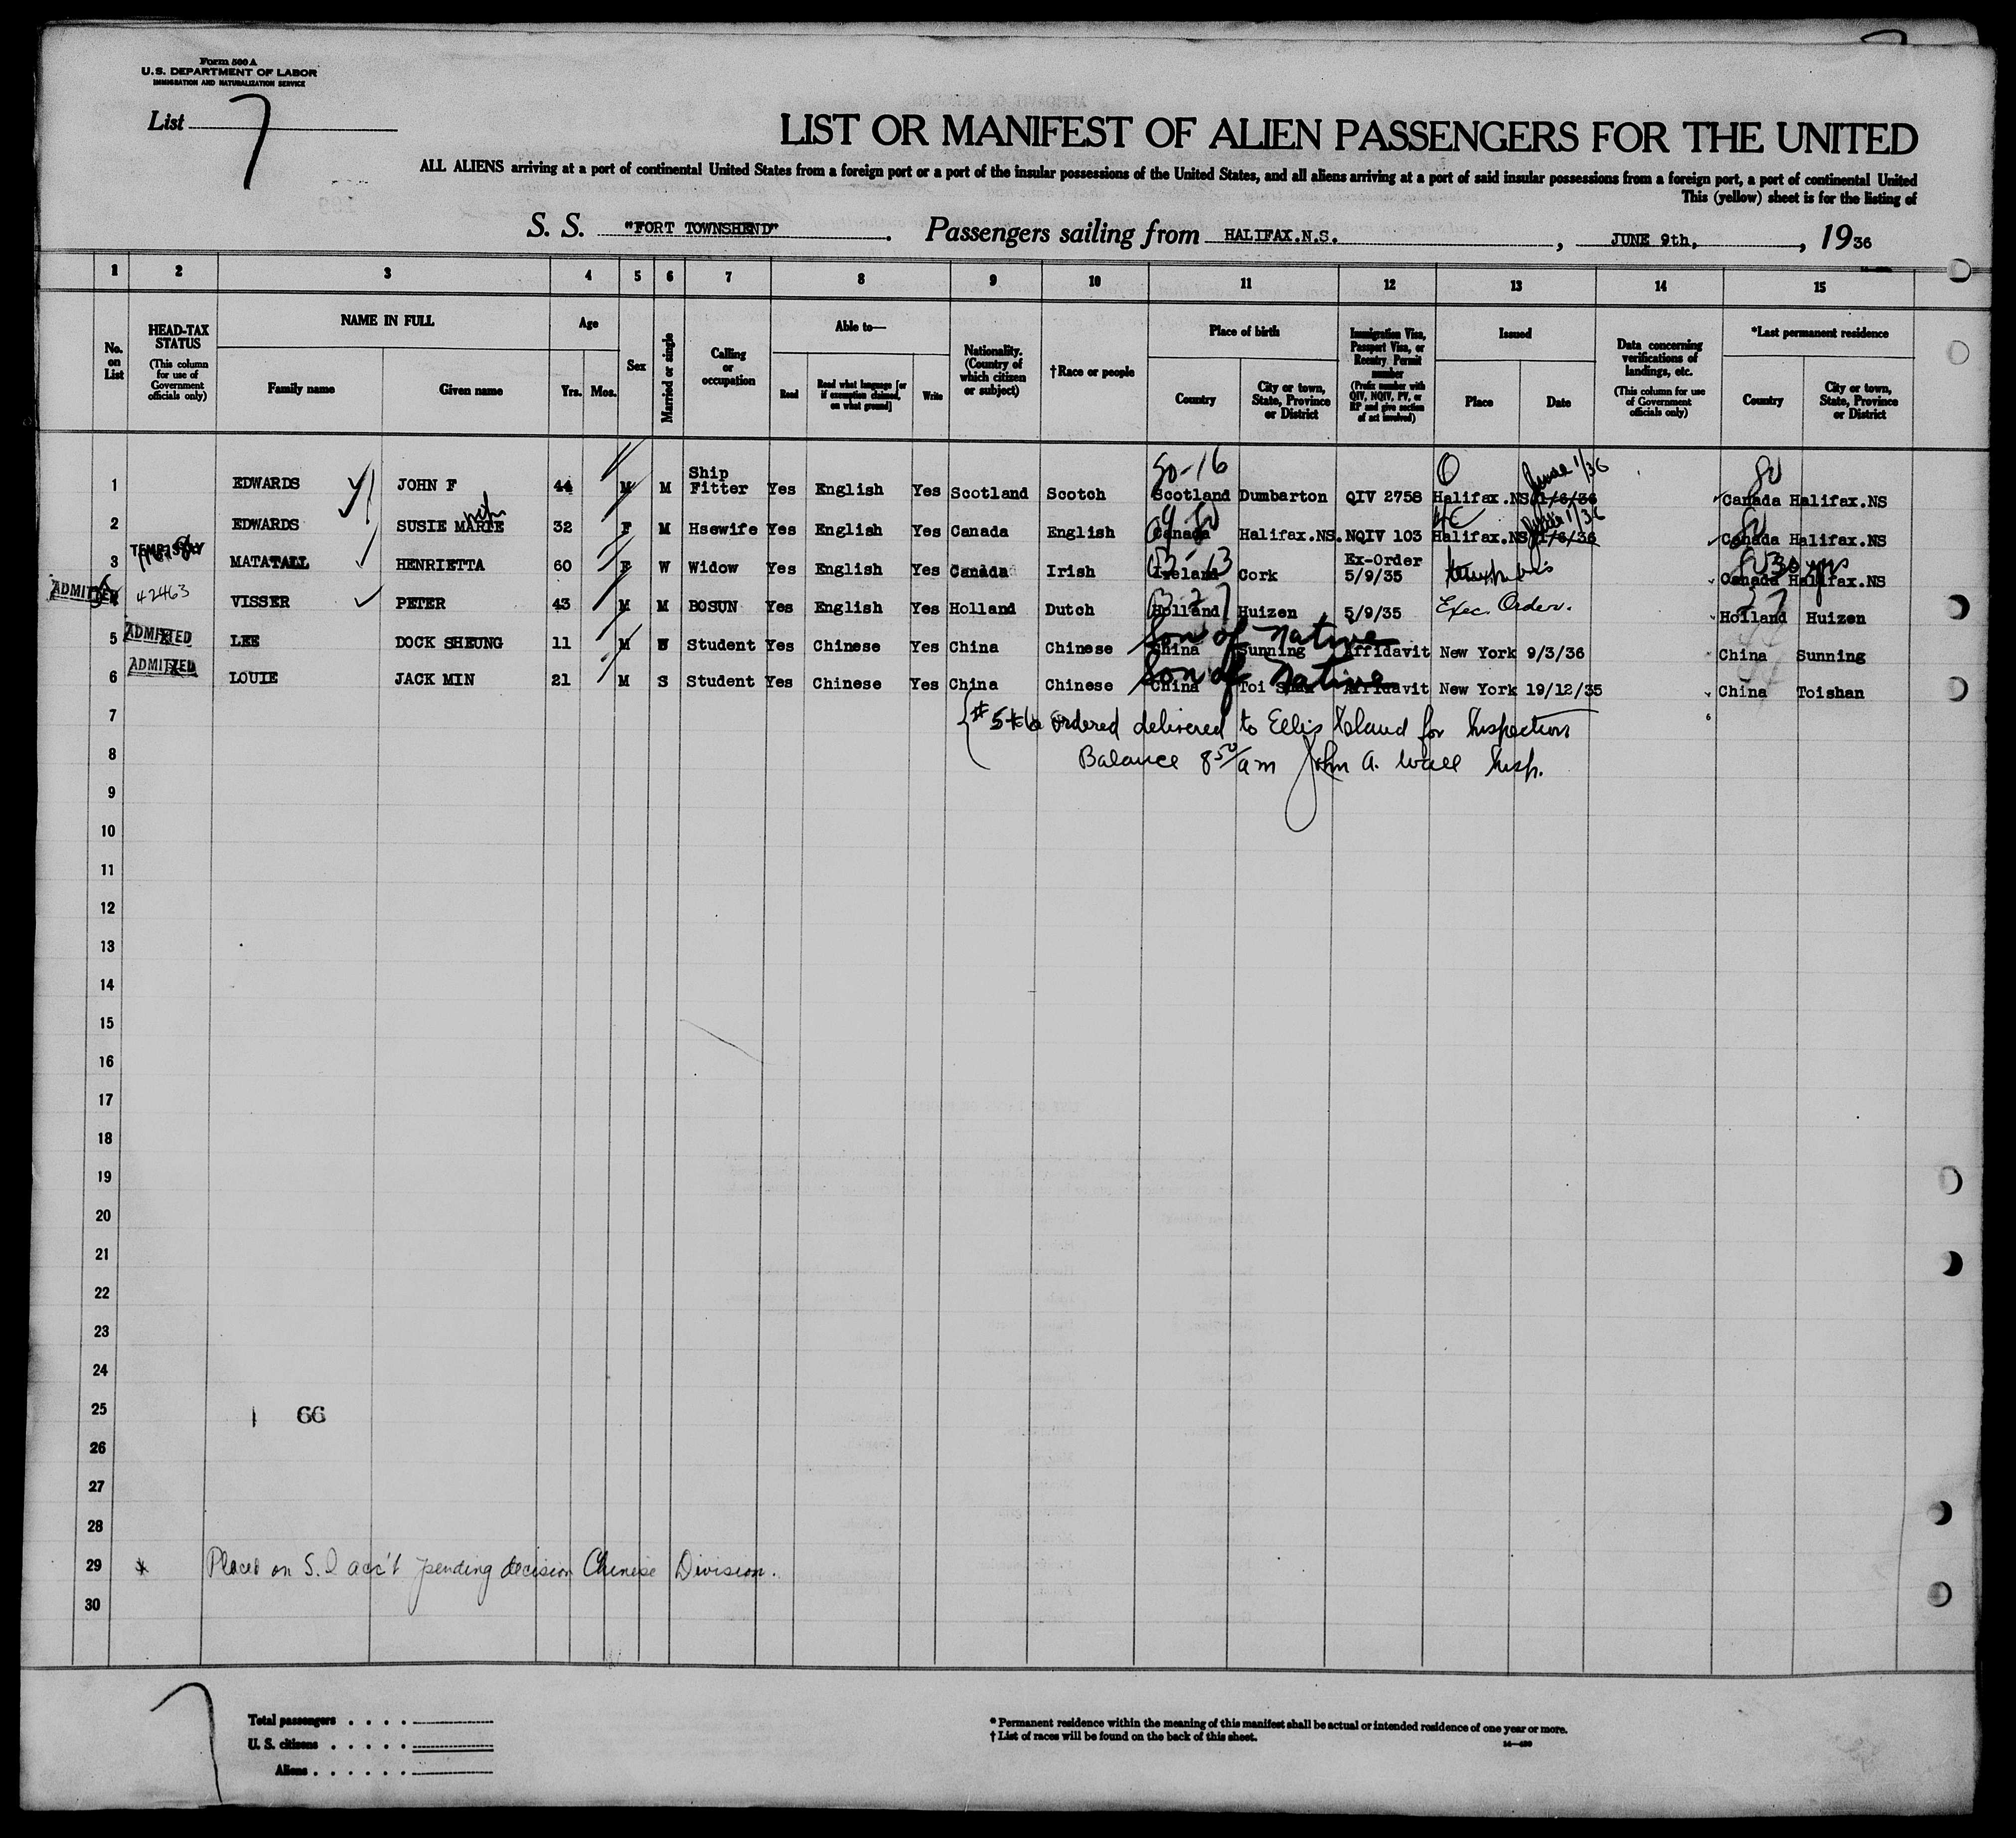 Form 500 A
U.S. DEPARTMENT OF LABOR
IMMIGRATION AND NATURALIZATION SERVICE
List 7
LIST OR MANIFEST OF ALIEN PASSENGERS FOR THE UNITED
ALL ALIENS arriving at a port of continental United States from a foreign port or a port of the insular possessions of the United States, and all aliens arriving at a port of said insular possessions from a foreign port, a port of continental United
This (yellow) sheet is for the listing of
S. S. "FORT TOWNSHEND". Passengers sailing from HALIFAX.N.S., JUNE 9th, , 1936
1 2 3 4 5 6 7 8 9 10 11 12 13 14 15
No. on List
HEAD-TAX STATUS (This column for use of Government officials only)
NAME IN FULL
Family name
Given name
Age
Yrs. Mos.
Sex
Married or single
Calling or occupation
Able to—
Read
Read what language [or if exemption claimed, on what ground]
Write
Nationality. (Country of which citizen or subject)
†Race or people
Place of birth
Country
City or town, State, Province or District
Immigration Visa, Passport Visa, or Reentry Permit number (Prefix number with QIV, NQIV, PV, or RP and give section of act involved)
Issued
Place
Date
Data concerning verifications of landings, etc. (This column for use of Government officials only)
*Last permanent residence
Country
City or town, State, Province or District
80-16 June 1/36 80
1 EDWARDS JOHN F 44 M M Ship Fitter Yes English Yes Scotland Scotch Scotland Dumbarton QIV 2758 Halifax.NS 1/6/36 Canada Halifax.NS
wife June 1/36
2 EDWARDS SUSIE MARIE 32 F M Hsewife Yes English Yes Canada English Canada Halifax.NS. NQIV 103 Halifax.NS 1/6/36 Canada Halifax.NS
3 MATATALL HENRIETTA 60 F W Widow Yes English Yes Canada Irish Ireland Cork Ex-Order 5/9/35 30 yrs Canada Halifax.NS
ADMITTED 4 42463 VISSER PETER 43 M M BOSUN Yes English Yes Holland Dutch Holland Huizen 5/9/35 Exec. Order. Holland Huizen
5 ADMITTED LEE DOCK SHEUNG 11 M S Student Yes Chinese Yes China Chinese Son of Native China Sunning Affidavit New York 9/3/36 China Sunning
6 ADMITTED LOUIE JACK MIN 21 M S Student Yes Chinese Yes China Chinese Son of Native China Toi Shan Affidavit New York 19/12/35 China Toishan
7 #5+6 ordered delivered to Ellis Island for Inspection
8 Balance 8 50/am John A. Wall Insp.
9
10
11
12
13
14
15
16
17
18
19
20
21
22
23
24
25 66
26
27
28
29 * Placed on S.I acc't pending decision Chinese Division.
30
7
Total passengers . . . .
U. S. citizens . . . . .
Aliens . . . . . .
* Permanent residence within the meaning of this manifest shall be actual or intended residence of one year or more.
† List of races will be found on the back of this sheet.